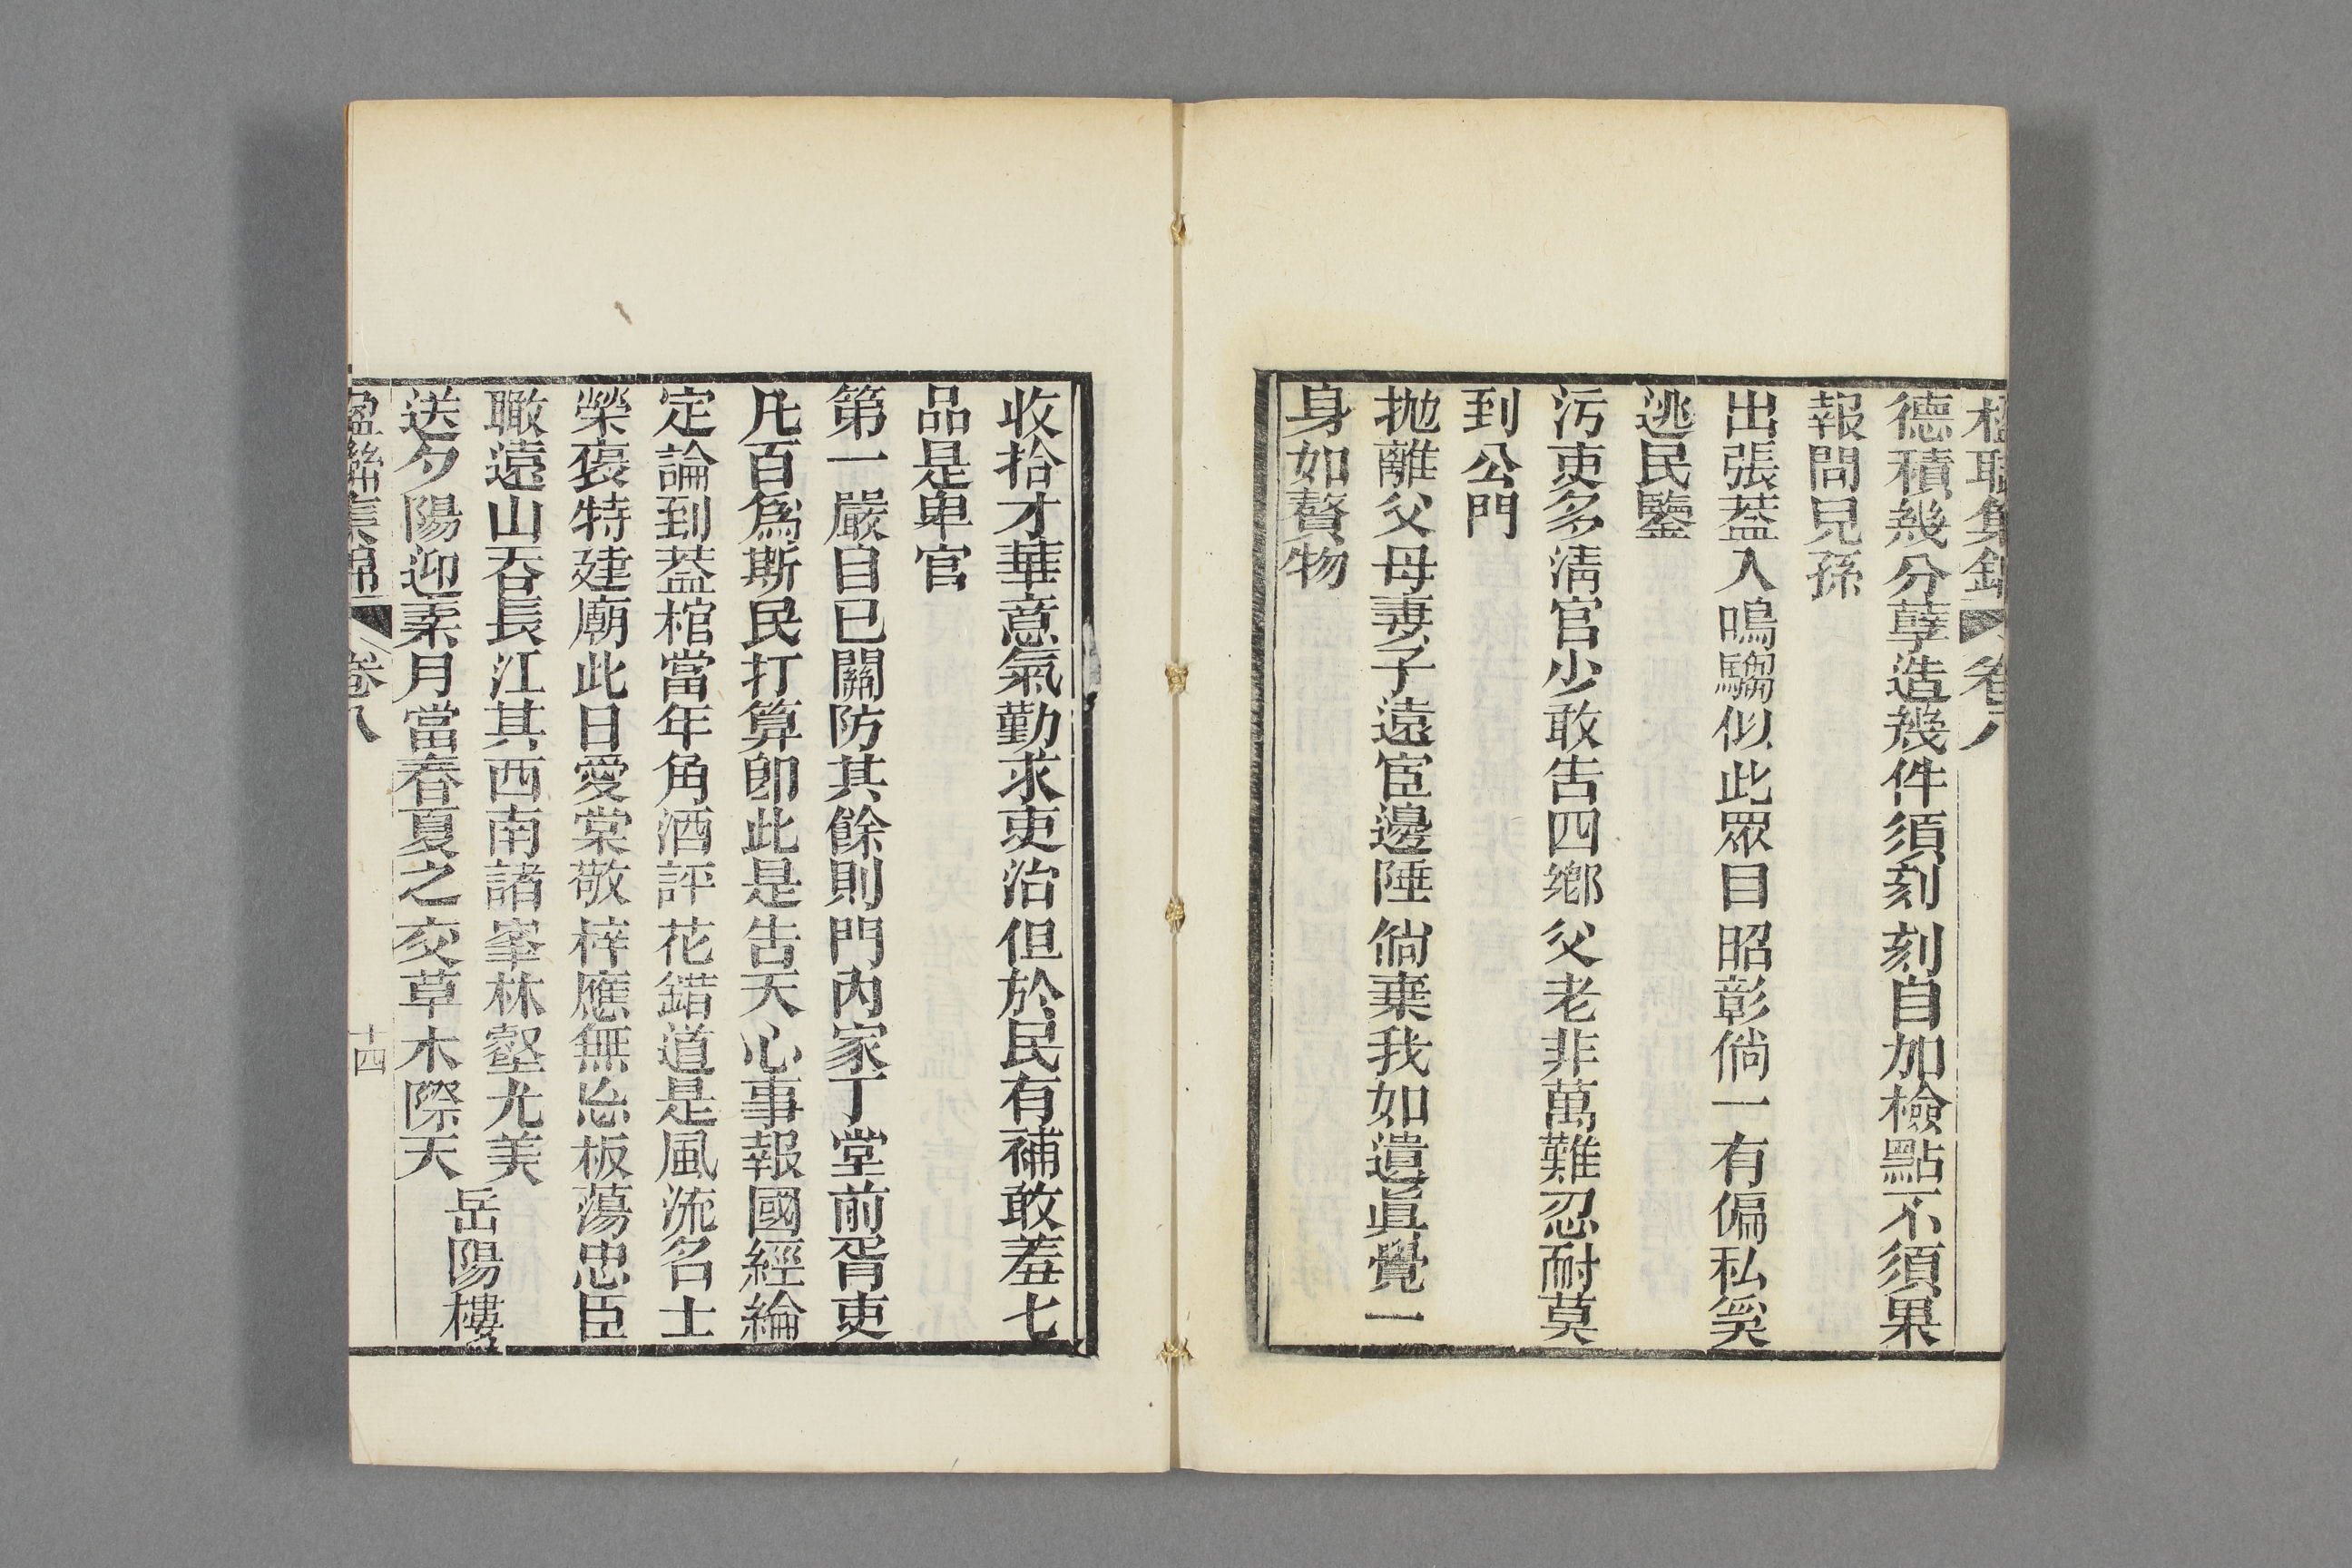 楹聯集錦 卷八
德積幾分孽造幾件須刻刻自加檢點不須果
報問兒孫
出張蓋入鳴騶似此眾目昭彰倘一有偏私奚
逃民鑒
污吏多清官少敢告四鄉父老非萬難忍耐莫
到公門
拋離父母妻子遠宦邊陲倘棄我如遺真覺一
身如贅物
收拾才華意氣勤求吏治但於民有補敢羞七
品是卑官
第一嚴自已關防其餘則門內家丁堂前胥吏
凡百為斯民打算卽此是告天心事報國經綸
定論到蓋棺當年角酒評花錯道是風流名士
榮褒特建廟此日愛棠敬梓應無忝板蕩忠臣
瞰遠山吞長江其西南諸峯林壑尤美
送夕陽迎素月當春夏之交草木際天
岳陽樓
楹聯集錦 卷八 十四